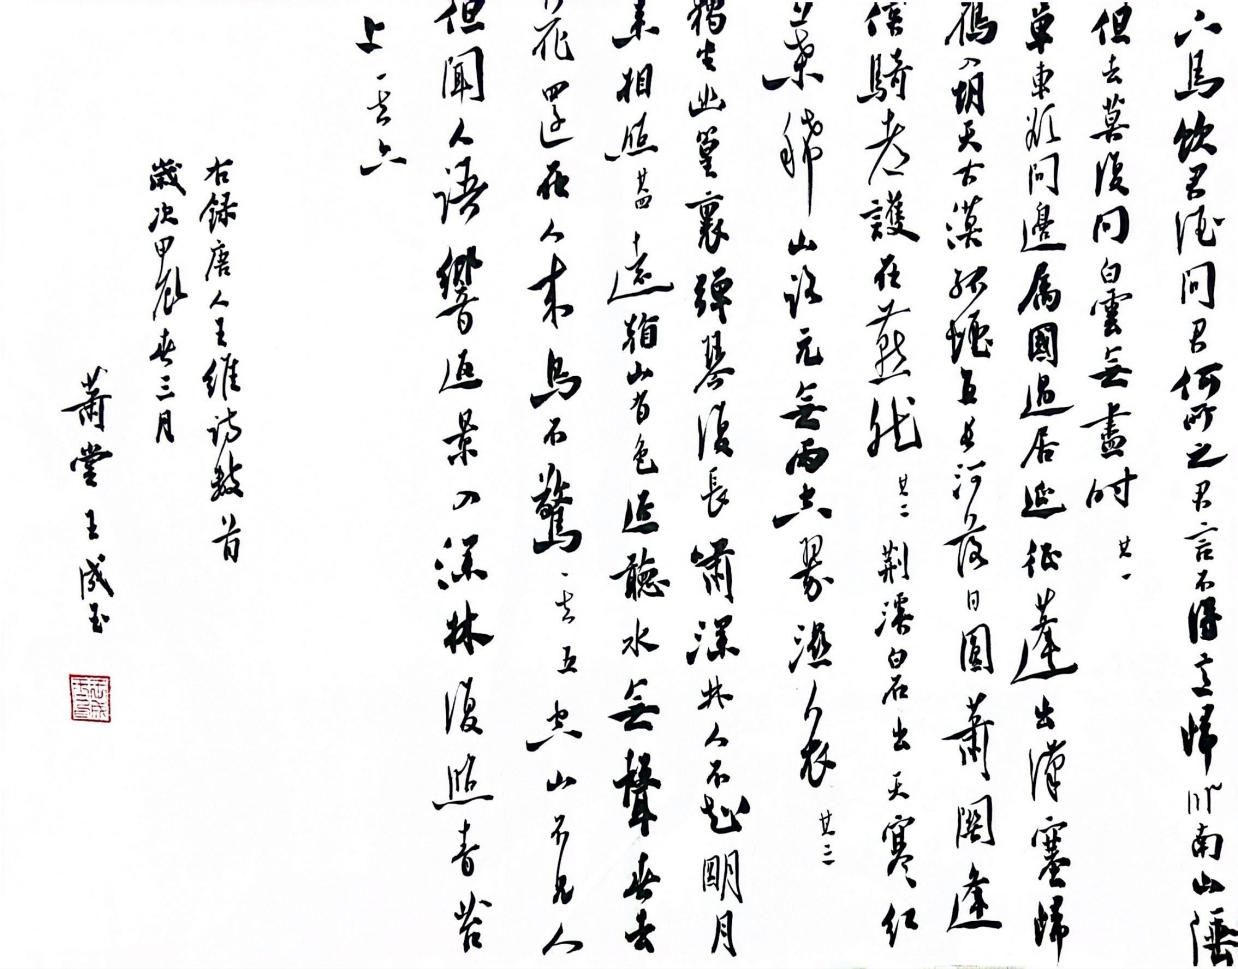 下馬飲君酒問君何所之君言不得意歸臥南山陲
但去莫復問白雲無盡時 其一
單車欲問邊屬國過居延征蓬出漢塞歸
雁入胡天大漠孤煙直長河落日圓蕭關逢
候騎都護在燕然 其二 荆溪白石出天寒红
葉稀山路元無雨空翠濕人衣 其三
獨坐幽篁裏彈琴復長嘯深林人不知明月
来相照 其四 遠看山有色近聽水無聲春去
花還在人來鳥不驚 其五 空山不見人
但聞人語響返景入深林復照青苔
上 其六
右録唐人王維诗数首
歲次甲辰春三月
蕭堂王成玉